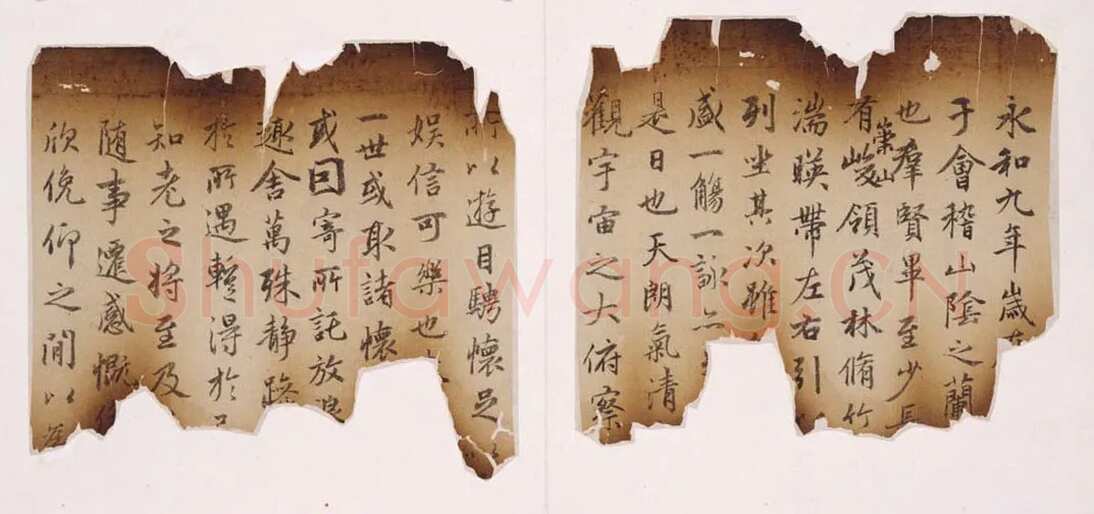 永和九年歲在
于會稽山陰之蘭
也羣賢畢至少長
有崇山峻領茂林脩竹
湍暎帶左右引
列坐其次雖
盛一觴一詠亦
是日也天朗氣清
觀宇宙之大俯察
所以遊目騁懷足以
娛信可樂也
一世或取諸懷
或因寄所託放浪
趣舍萬殊靜躁
於所遇蹔得於己
知老之將至及
隨事遷感慨係
欣俛仰之間以為
Shufawang.CN